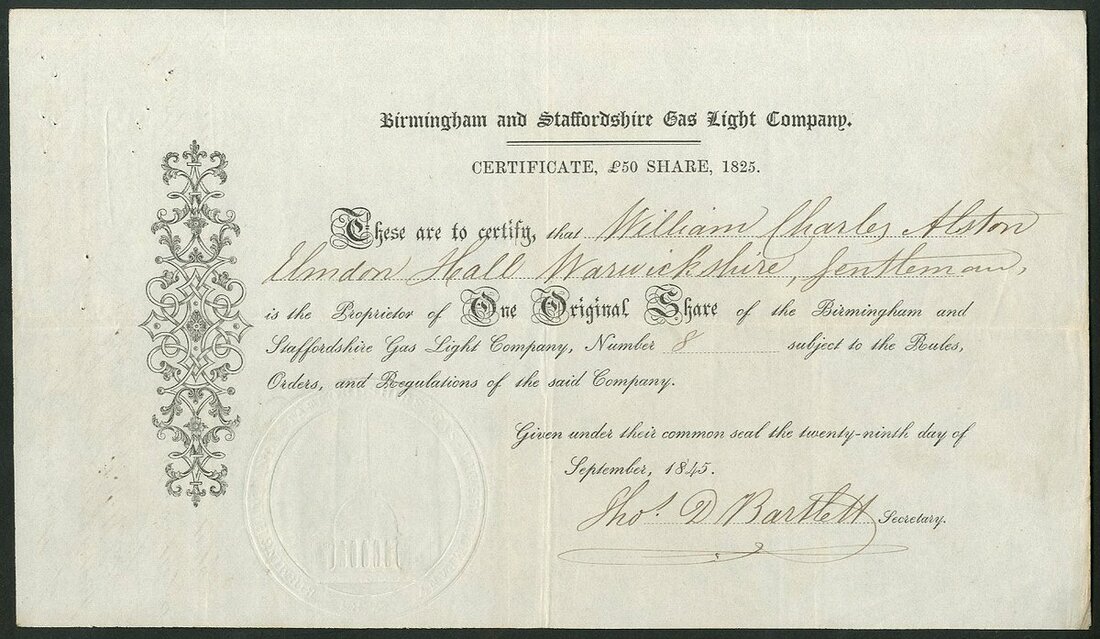 Birmingham and Staffordshire Gas Light Company.
CERTIFICATE, £50 SHARE, 1825.
These are to certify, that William Charles Alston
Elmdon Hall Warwickshire, Gentleman,
is the Proprietor of One Original Share of the Birmingham and
Staffordshire Gas Light Company, Number 8 subject to the Rules,
Orders, and Regulations of the said Company.
Given under their common seal the twenty-ninth day of
September, 1845.
Thos. D Bartlett Secretary.